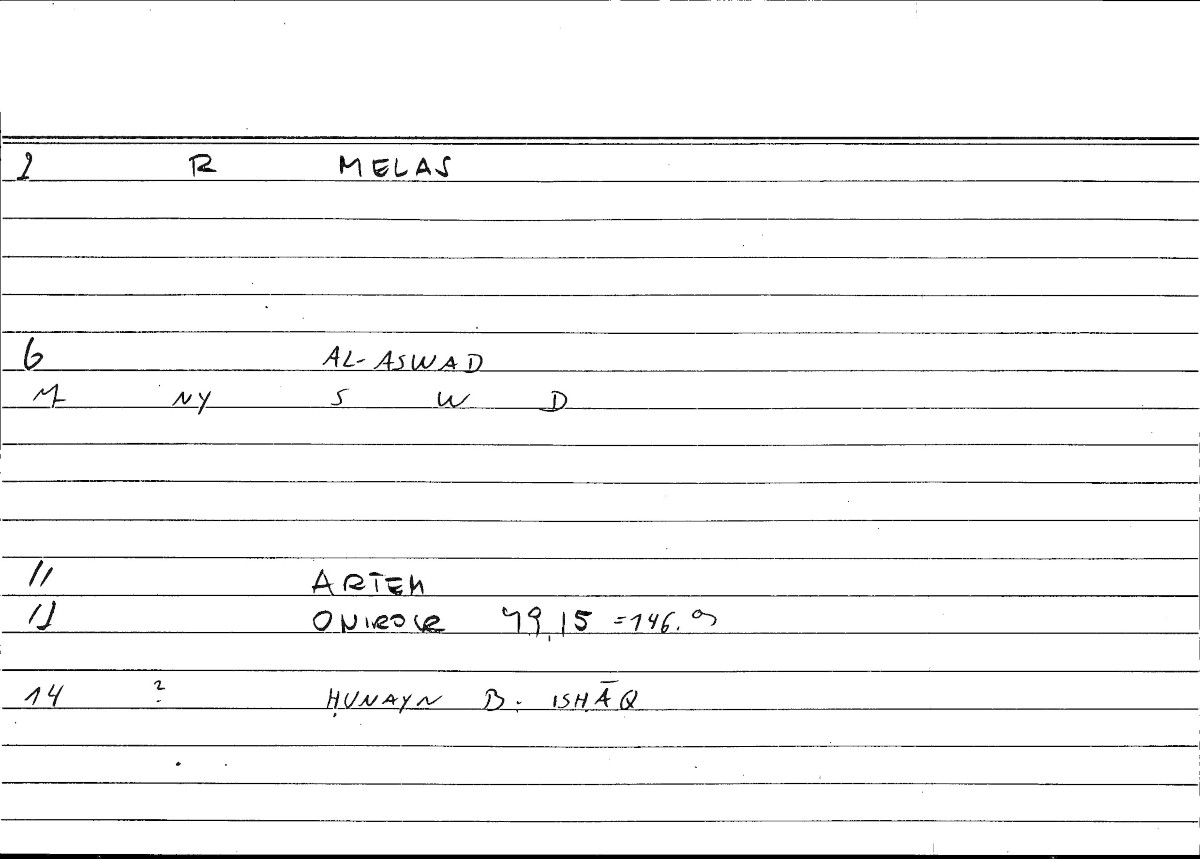 2 R MELAS
6 AL-ASWAD
M NY S W D
11 ARTEM
12 ONIROCR 49,15 =146.9
14 ? ḤUNAYN B. ISḤĀQ